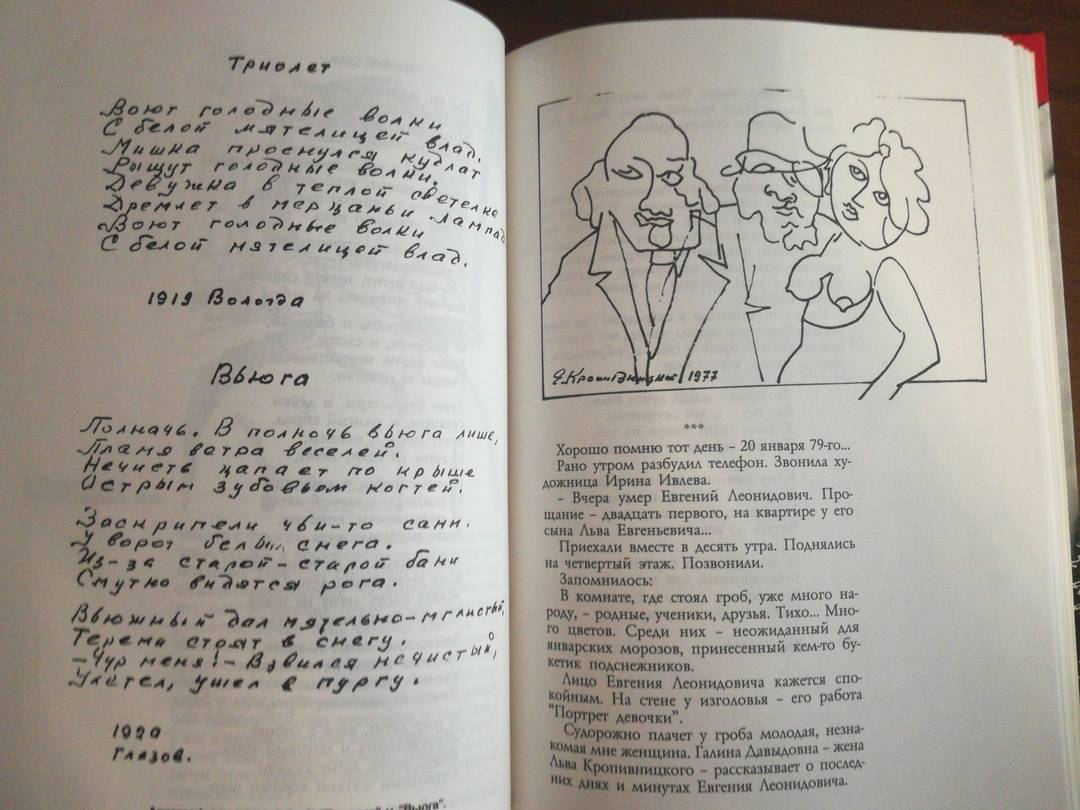 Триолет
Воют голодные волки
С белой мятелицей влад.
Мишка проснулся кудлат
Рыщут голодные волки.
Девушка в теплой светелке
Дремлет в мерцаньи лампад
Воют голодные волки
С белой мятелицей влад.
1919 Вологда
Вьюга
Полночь. В полночь вьюга лише,
Пламя ветра веселей.
Нечисть цапает по крыше
Острым зубовьем когтей.
Заскрипели чьи-то сани.
У ворот белы снега.
Из-за старой-старой бани
Смутно видятся рога.
Вьюжный дал мятельно-мглистый,
Терема стоят в снегу.
-Чур меня!- Взвился нечистый,
Улетел, ушел в пургу.
1920
Глазов.
"Вьюга".
Е. Кропивницкий 1977
***
Хорошо помню тот день – 20 января 79-го...
Рано утром разбудил телефон. Звонила ху-
дожница Ирина Ивлева.
– Вчера умер Евгений Леонидович. Про-
щание – двадцать первого, на квартире у его
сына Льва Евгеньевича...
Приехали вместе в десять утра. Поднялись
на четвертый этаж. Позвонили.
Запомнилось:
В комнате, где стоял гроб, уже много на-
роду, – родные, ученики, друзья. Тихо... Мно-
го цветов. Среди них – неожиданный для
январских морозов, принесенный кем-то бу-
кетик подснежников.
Лицо Евгения Леонидовича кажется спо-
койным. На стене у изголовья – его работа
"Портрет девочки".
Судорожно плачет у гроба молодая, незна-
комая мне женщина. Галина Давыдовна – жена
Льва Кропивницкого – рассказывает о послед-
них днях и минутах Евгения Леонидовича.